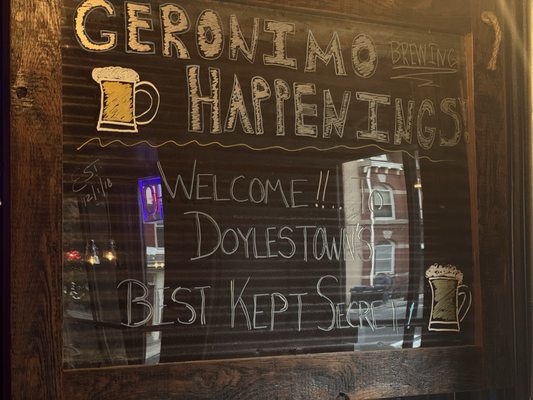 GERONIMO BREWING
HAPPENINGS!
EST
12/1/18
WELCOME!!... TO
DOYLESTOWN'S
BEST KEPT SECRET!